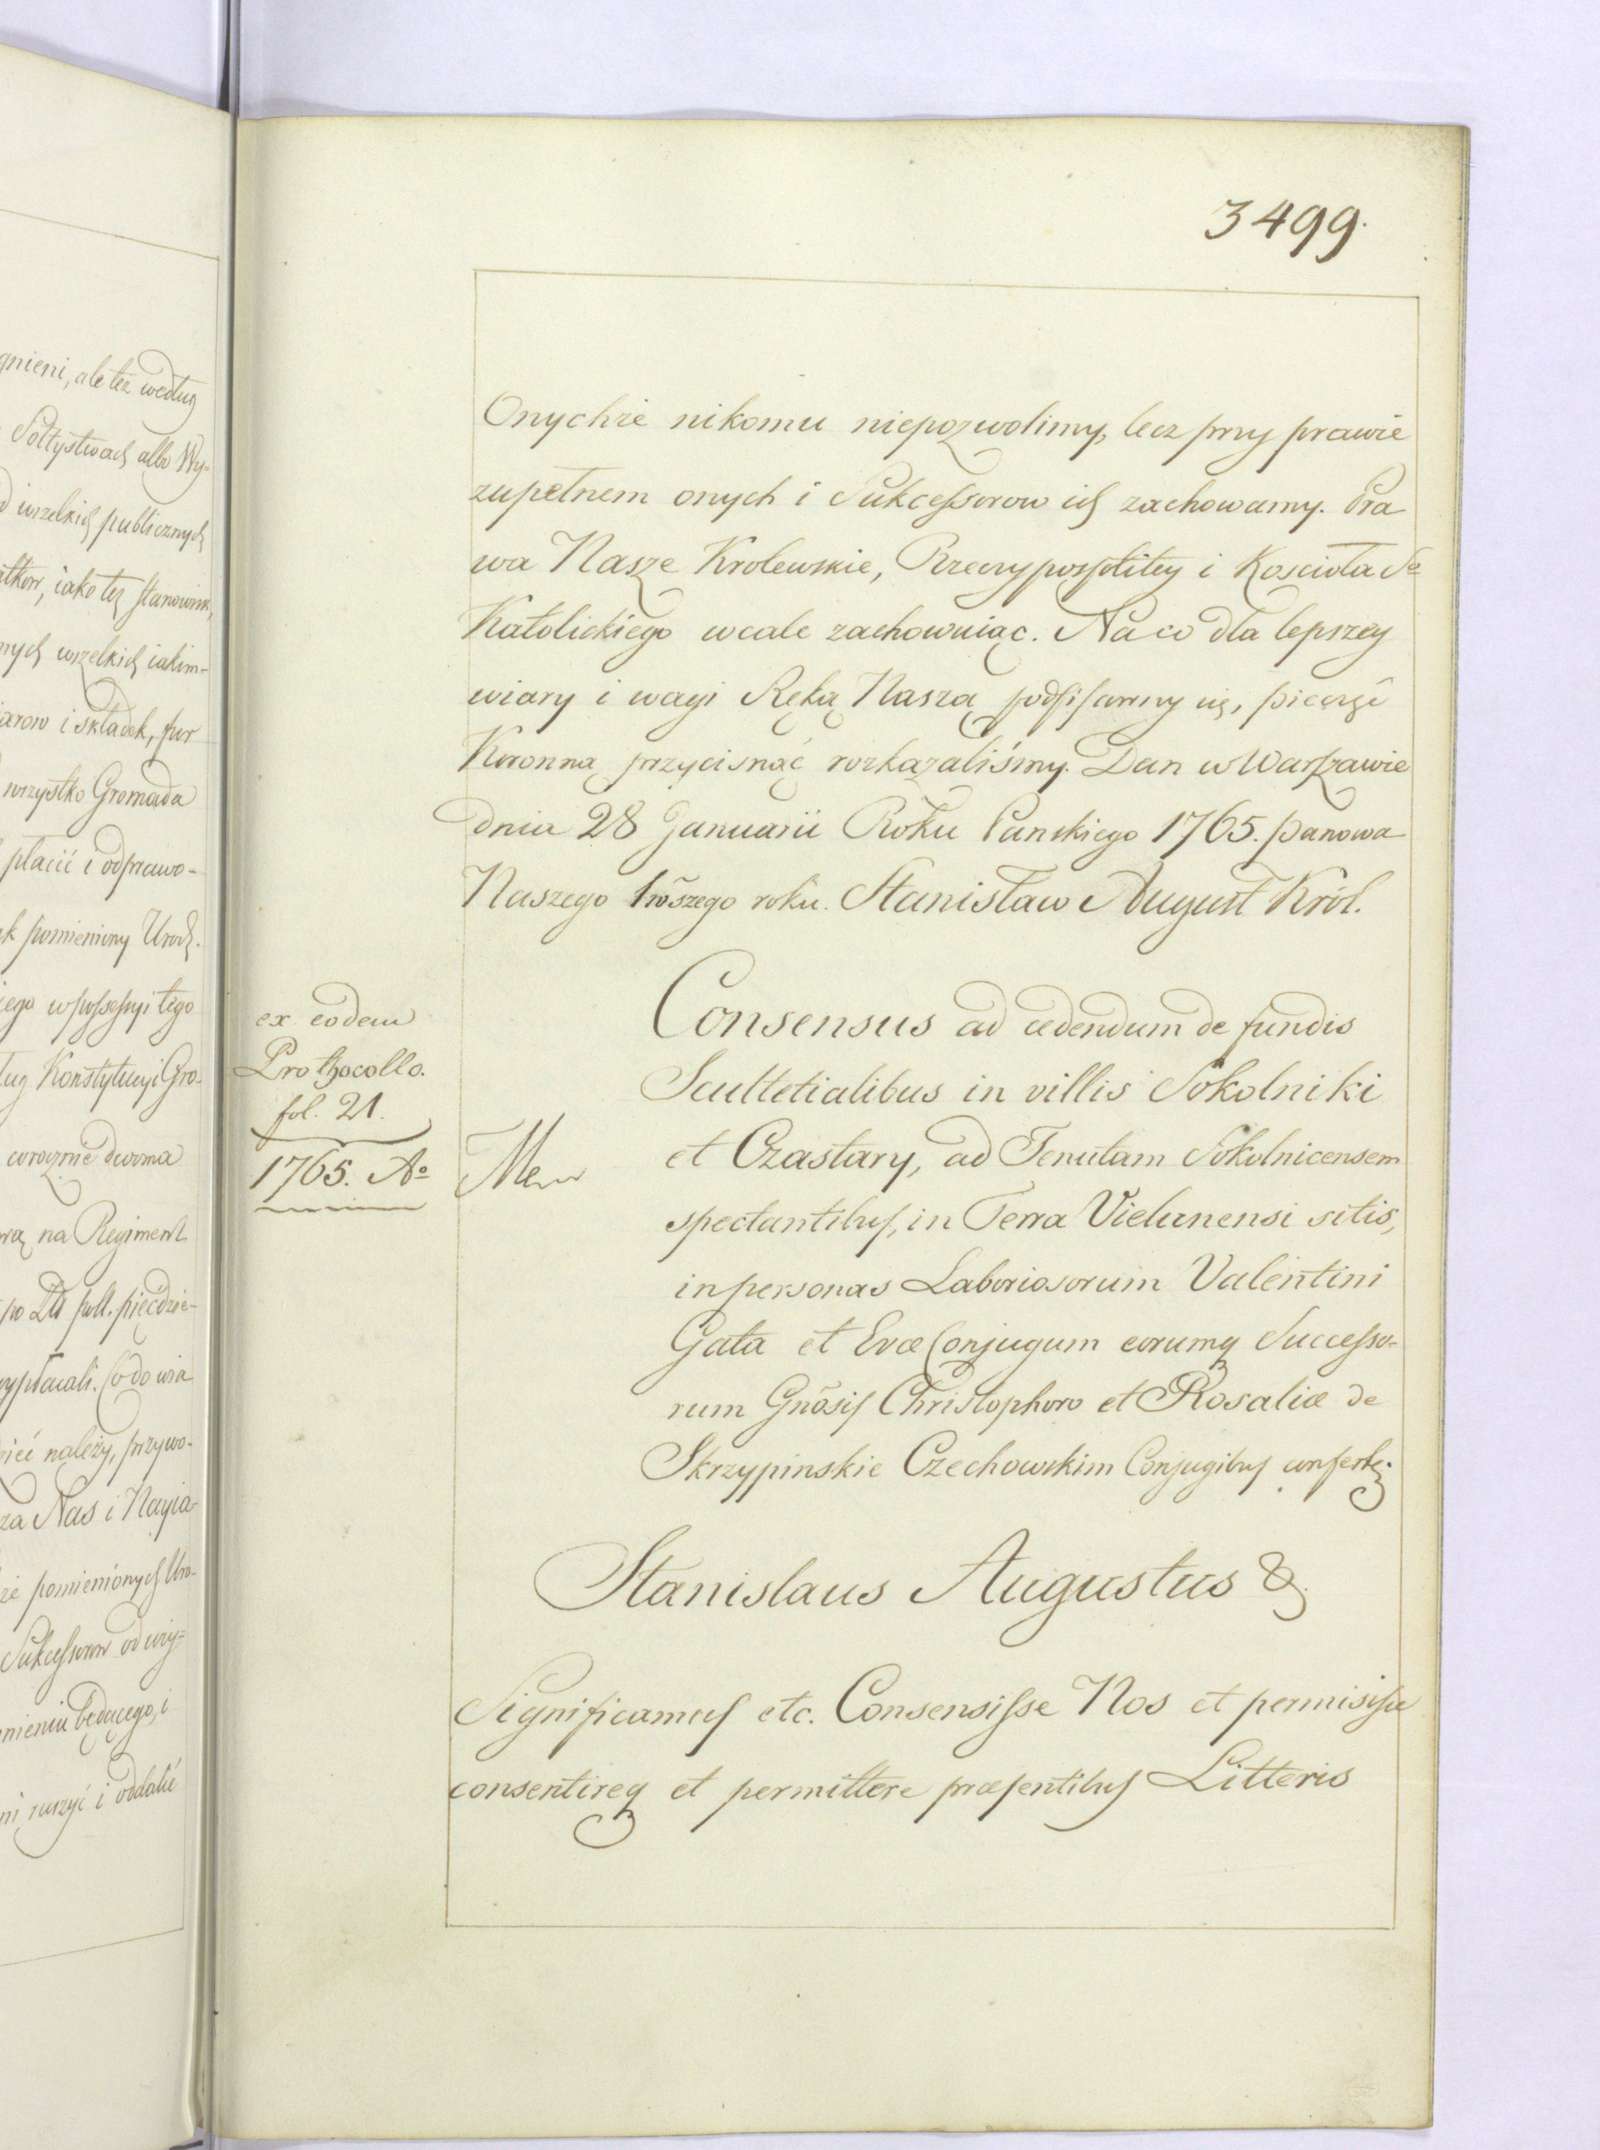 gnieni, ale też według
Sołtystwach albo Wy-
wszelkich publicznych
iako też stanowisk,
nych wszelkich iakim-
arow i składek, fur
wszystko Gromada
płacić i odprawo-
k pomieniony Urodz.
iego w possessyi tego
ług Konstytucyi Gro-
corocznie dwoma
na Regiment
po pięćdzie-
Co do wia
należy, przywo-
za Nas i Nayia-
że pomienionych Uro-
Sukcessorow od wży-
mieniu będącego, i
ruszyć i oddalić
3499.
Onychże nikomu niepozwolimy, lecz przy prawie
zupełnem onych i Sukcessorow ich zachowamy. Pra
wa Nasze Krolewskie, Rzeczypospolitey i Kosciola So
Katolickiego wcale zachowuiąc. Na co dla lepszey
wiary i wagi Ręką Naszą podpisawszy się, pieczęć
Koronną przycisnąć rozkazaliśmy. Dan w Warszawie
dnia 28 Januarii Roku Panskiego 1765. panowa
Naszego 1wszego roku. Stanisław August Król.
ex eodem
Prothocollo.
fol. 21.
1765. Ao
Consensus ad cedendum de fundis
Scultetialibus in villis Sokolniki
et Czastary, ad Tenutam Sokolnicensem
spectantibus, in Terra Vielunensi sitis,
in personas Laboriosorum Valentini
Gala et Evæ Conjugum eorumq Successo-
rum Gnõsis Christophoro et Rosaliæ de
Skrzypinskie Czechowskim Conjugibus confertq
Stanislaus Augustus &
Significamus etc. Consensisse Nos et permisisse
consentireq et permittere præsentibus Litteris